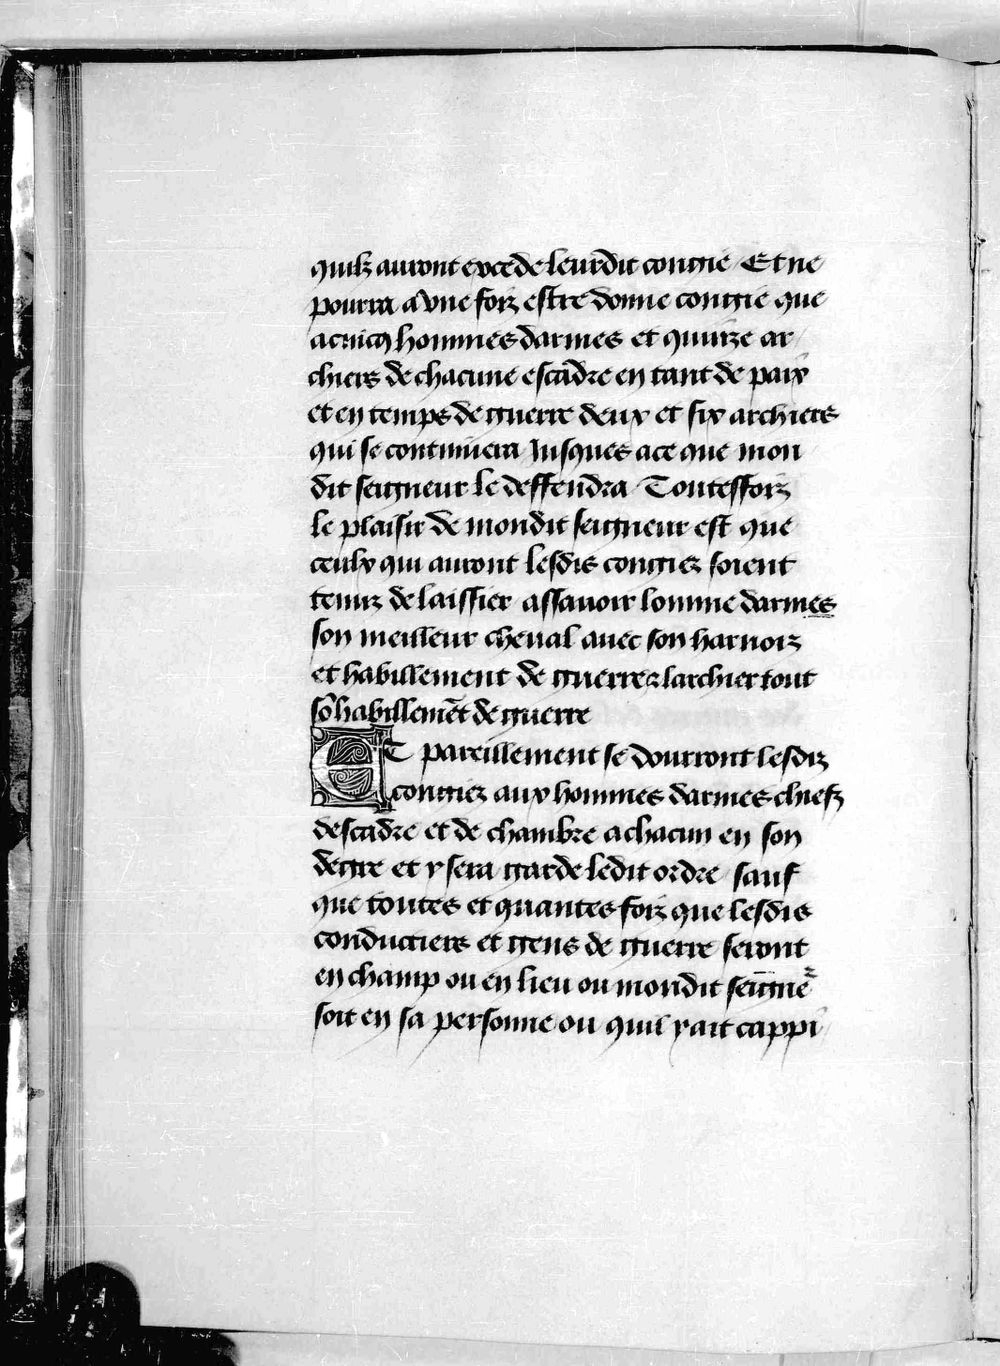 quilz auront excede leurdit congie Et ne
pourra a vne foiz estre donne congie que
a cincq hommes darmes et quinze ar
chiers de chacune escadre en tant de paix
et en temps de guerre deux et six archiers
qui se continuera Jusques a ce que mon
dit seigneur le deffendra Toutesfoiz
le plaisir de mondit seigneur est que
ceulx qui auront lesdis congiez soient
tenuz de laissier assauoir lomme darmes
son meilleur cheual auec son harnoiz
et habillement de guerre ⁊ larchier tout
sõ habillemẽt de guerre
ET pareillement se donrront lesdiz
congiez aux hommes darmes chiefz
descadre et de chambre a chacun en son
degre et y sera garde ledit ordre sauf
que toutes et quantes foiz que lesdis
conductiers et gens de guerre seront
en champ ou en lieu ou mondit seigneᷣ
soit en sa personne ou quil y ait cappi